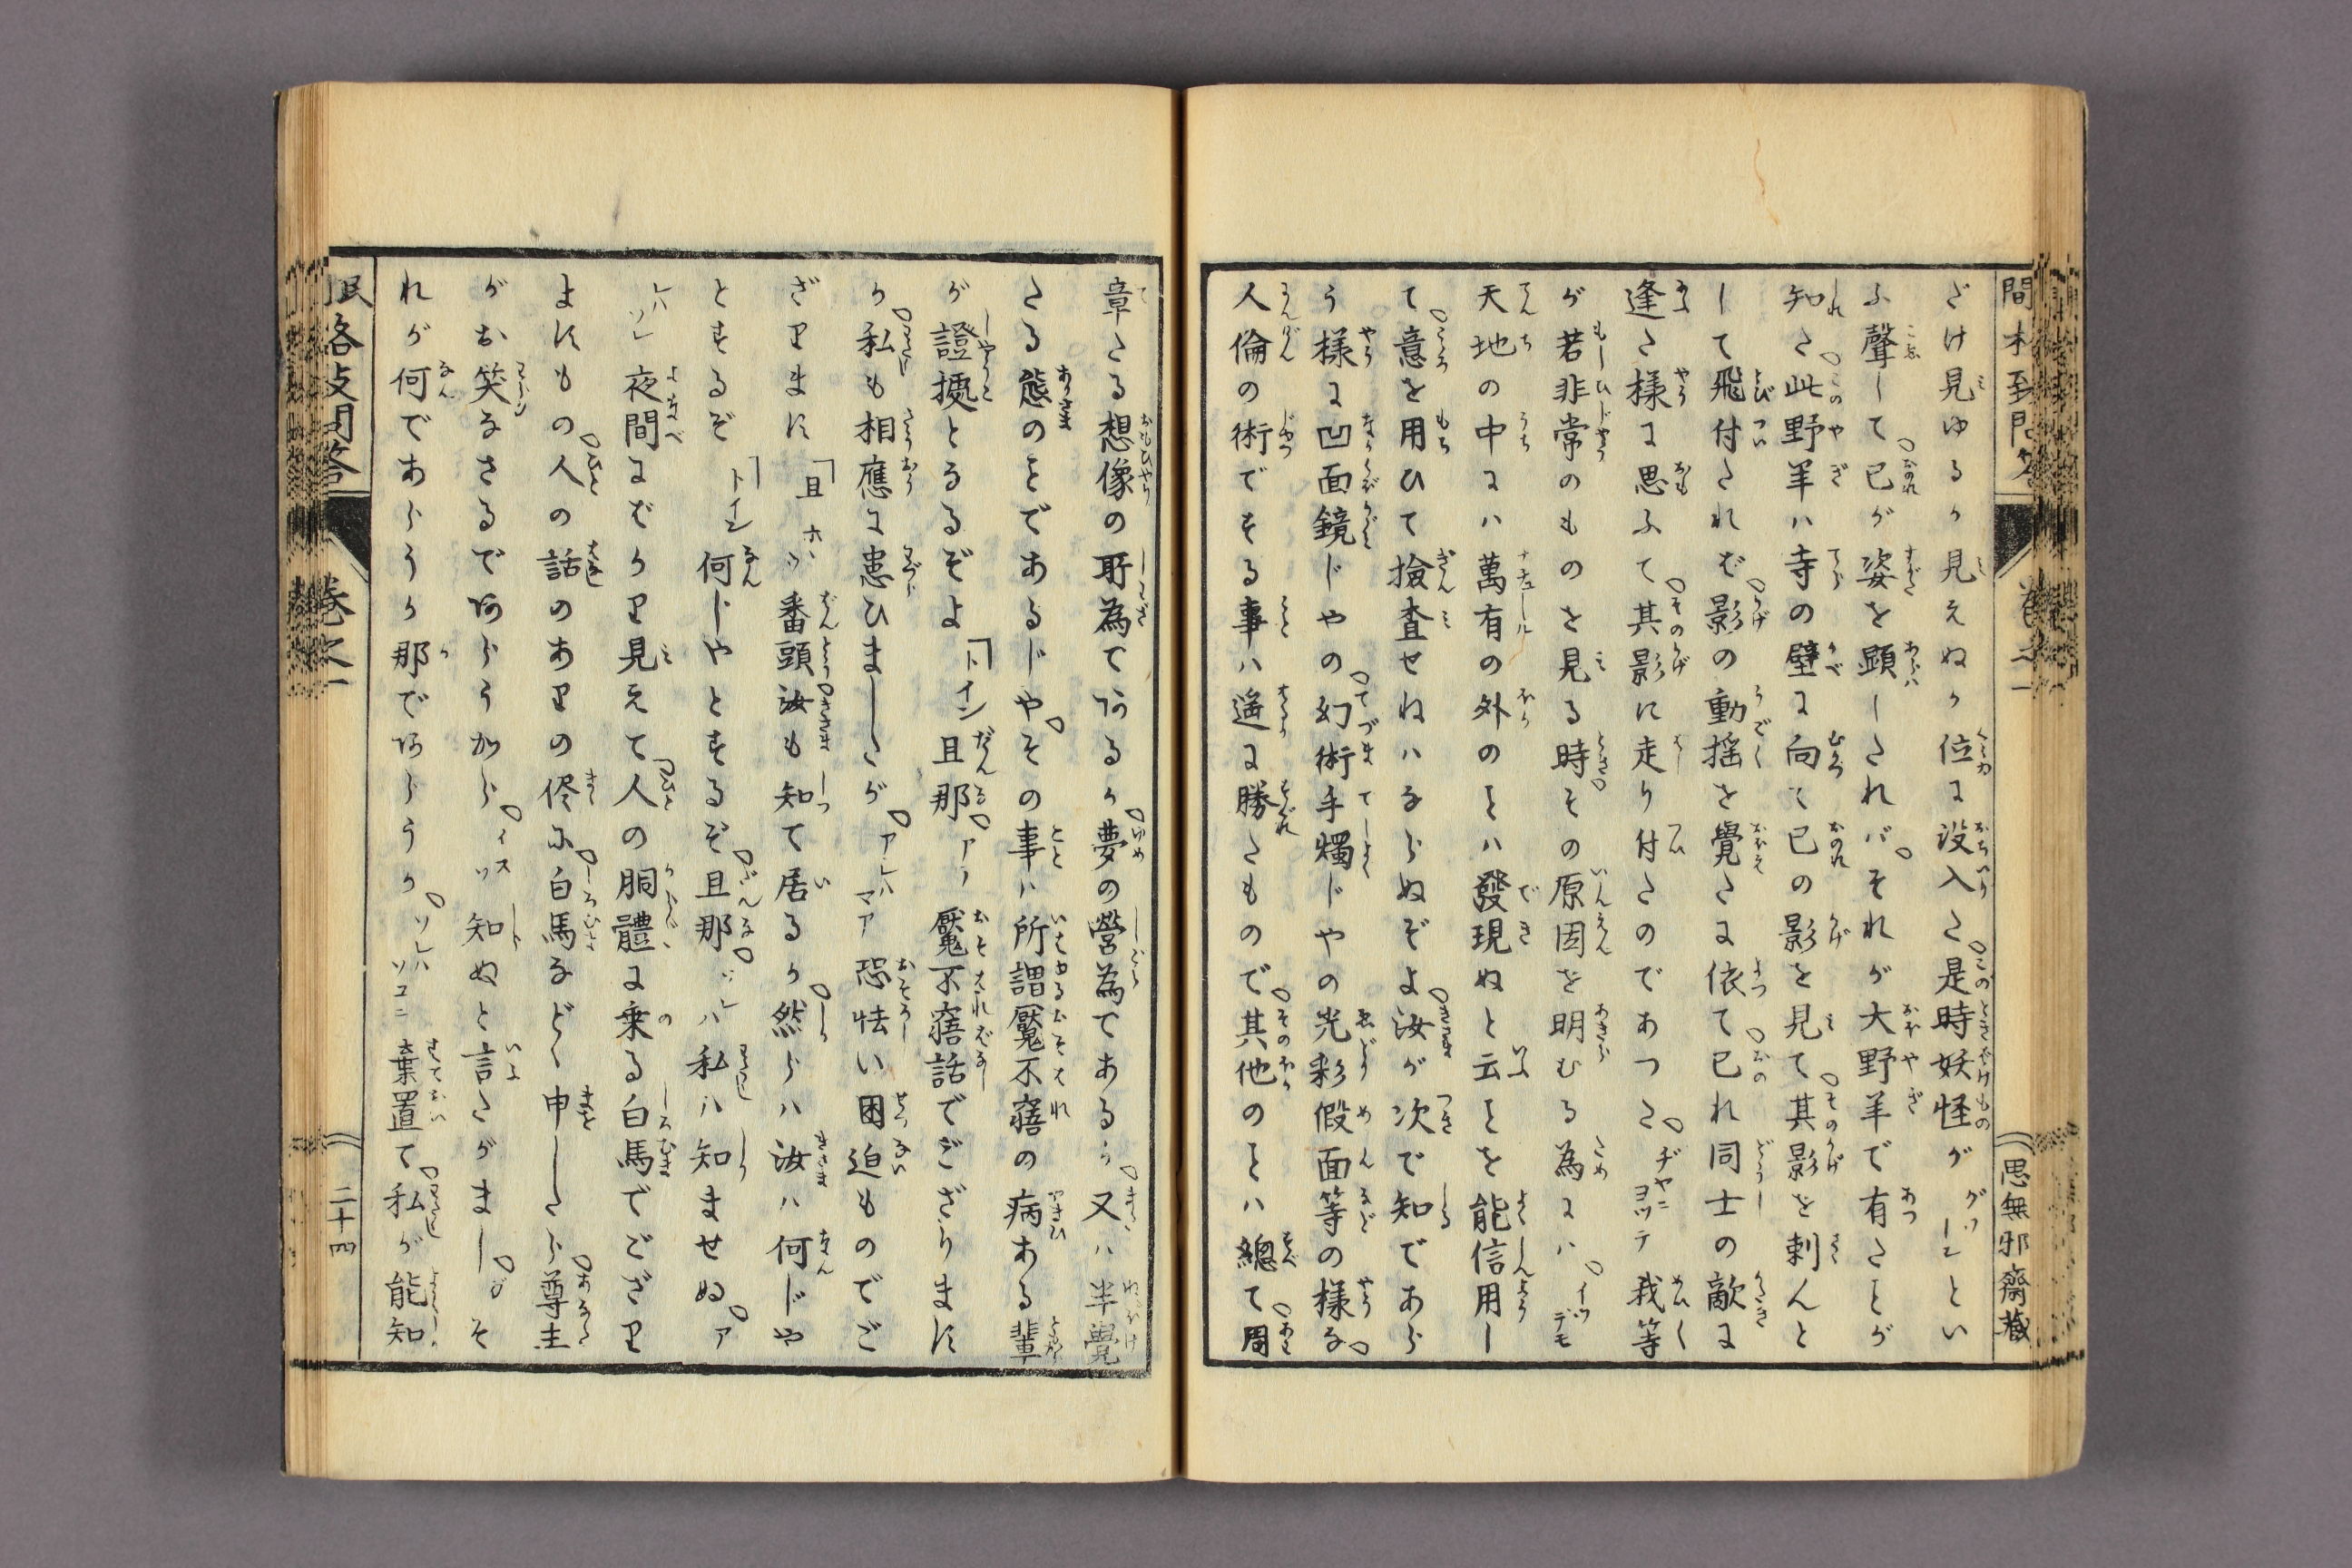 ざけ見ゆるか見えぬか位に没入た是時妖怪がグワーンとい
ふ聲して已が姿を顕したれバそれが大野羊で有たとが
知た此野羊ハ寺の壁に向て已の影を見て其影を刺んと
して飛付たれば影の動揺を覺たに依て已れ同士の敵に
逢た様に思ふて其影に走り付たのであつたヂャニヨツテ我等
が若非常のものを見る時その原因を明むる為にハイツデモ
天地の中にハ萬有の外のとハ發現ぬと云とを能信用し
て意を用ひて撿査せねハならぬぞよ汝が次で知であら
う様に凹面鏡じやの幻術手燭じやの光彩假面等の様な
人倫の術でする事ハ遙に勝たもので其他のとハ總て周
章たる想像の所為てあるか夢の營為てあるか又ハ半覺
たる態のとであるじやその事ハ所謂魘不寤の病ある輩
が證據とるるぞよ「トイン且那アノ魘不寤話でござりまに
か私も相應に患ひましたがアレハマア恐怯い困迫ものでご
ざりまに「且ホヽヲ番頭汝も知て居るか然らハ汝ハ何じや
とするぞ「トイン何じやとするぞ且那ソレハ私ハ知ませぬア
レハソレ夜間にばかり見えて人の胴體に乗る白馬でござり
よにもの人の話のありの侭に白馬など申したら尊主
がお笑なさるであらうからイスツ知ぬと言たがましがそ
れが何であらうか那であらうかソレハソコニ棄置て私が能知
巻之一
二十四
思無邪齋蔵